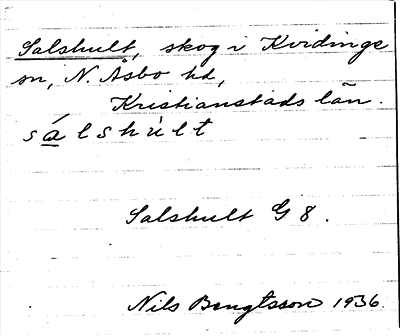 Salshult, skog i Kvidinge
sn, N. Åsbo hd,
Kristianstads län.
sálshùlt
Salshult G 8.
Nils Bengtsson 1936.